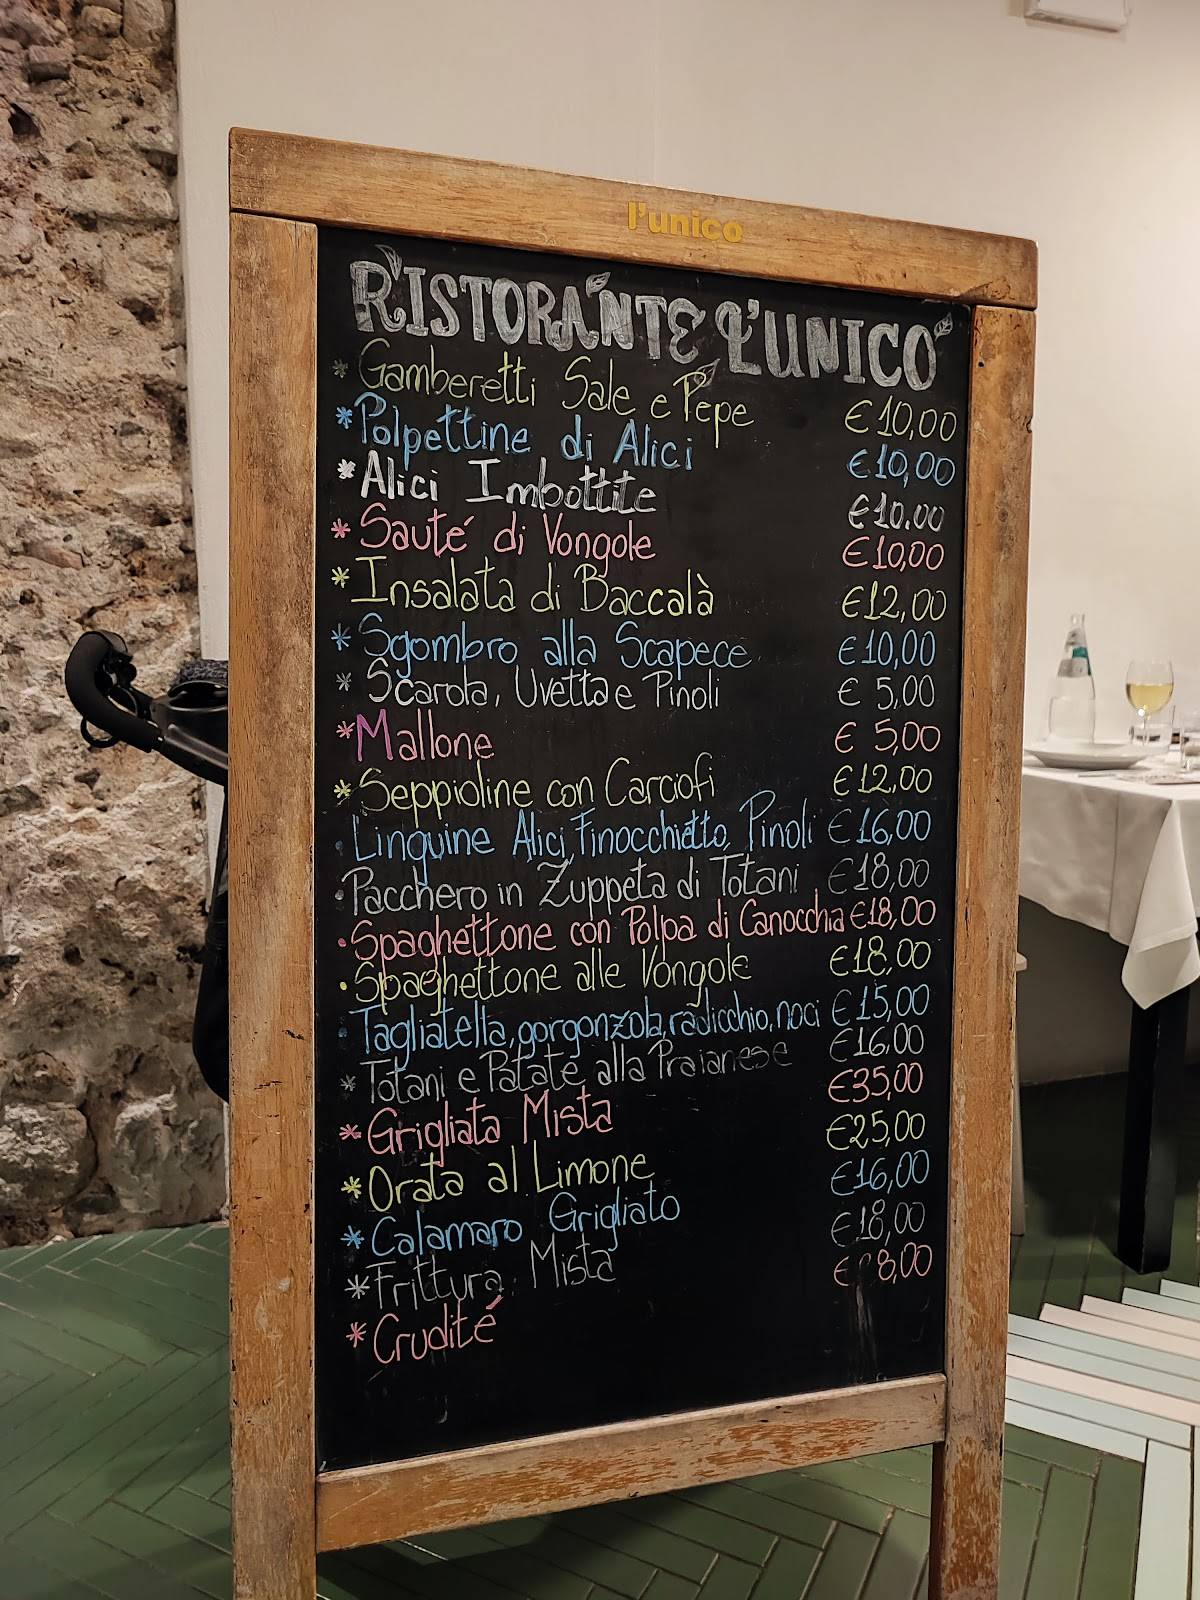 l'unico
RISTORANTE L'UNICO
* Gamberetti Sale e Pepe € 10,00
* Polpettine di Alici € 10,00
* Alici Imbottite € 10.00
* Sauté di Vongole € 10,00
* Insalata di Baccalà € 12,00
* Sgombro alla Scapece € 10,00
* Scarola, Uvetta e Pinoli € 5,00
* Mallone € 5,00
* Seppioline con Carciofi € 12,00
· Linguine Alici, Finocchietto, Pinoli € 16,00
· Pacchero in Zuppeta di Totani € 18,00
· Spaghettone con Polpa di Canocchia € 18,00
· Spaghettone alle Vongole € 18,00
· Tagliatella, gorgonzola, radicchio, noci € 15,00
* Totani e Patate alla Praianese € 16,00
* Grigliata Mista € 35,00
* Orata al Limone € 25,00
* Calamaro Grigliato € 16,00
* Frittura Mista € 18,00
* Crudité € 8,00